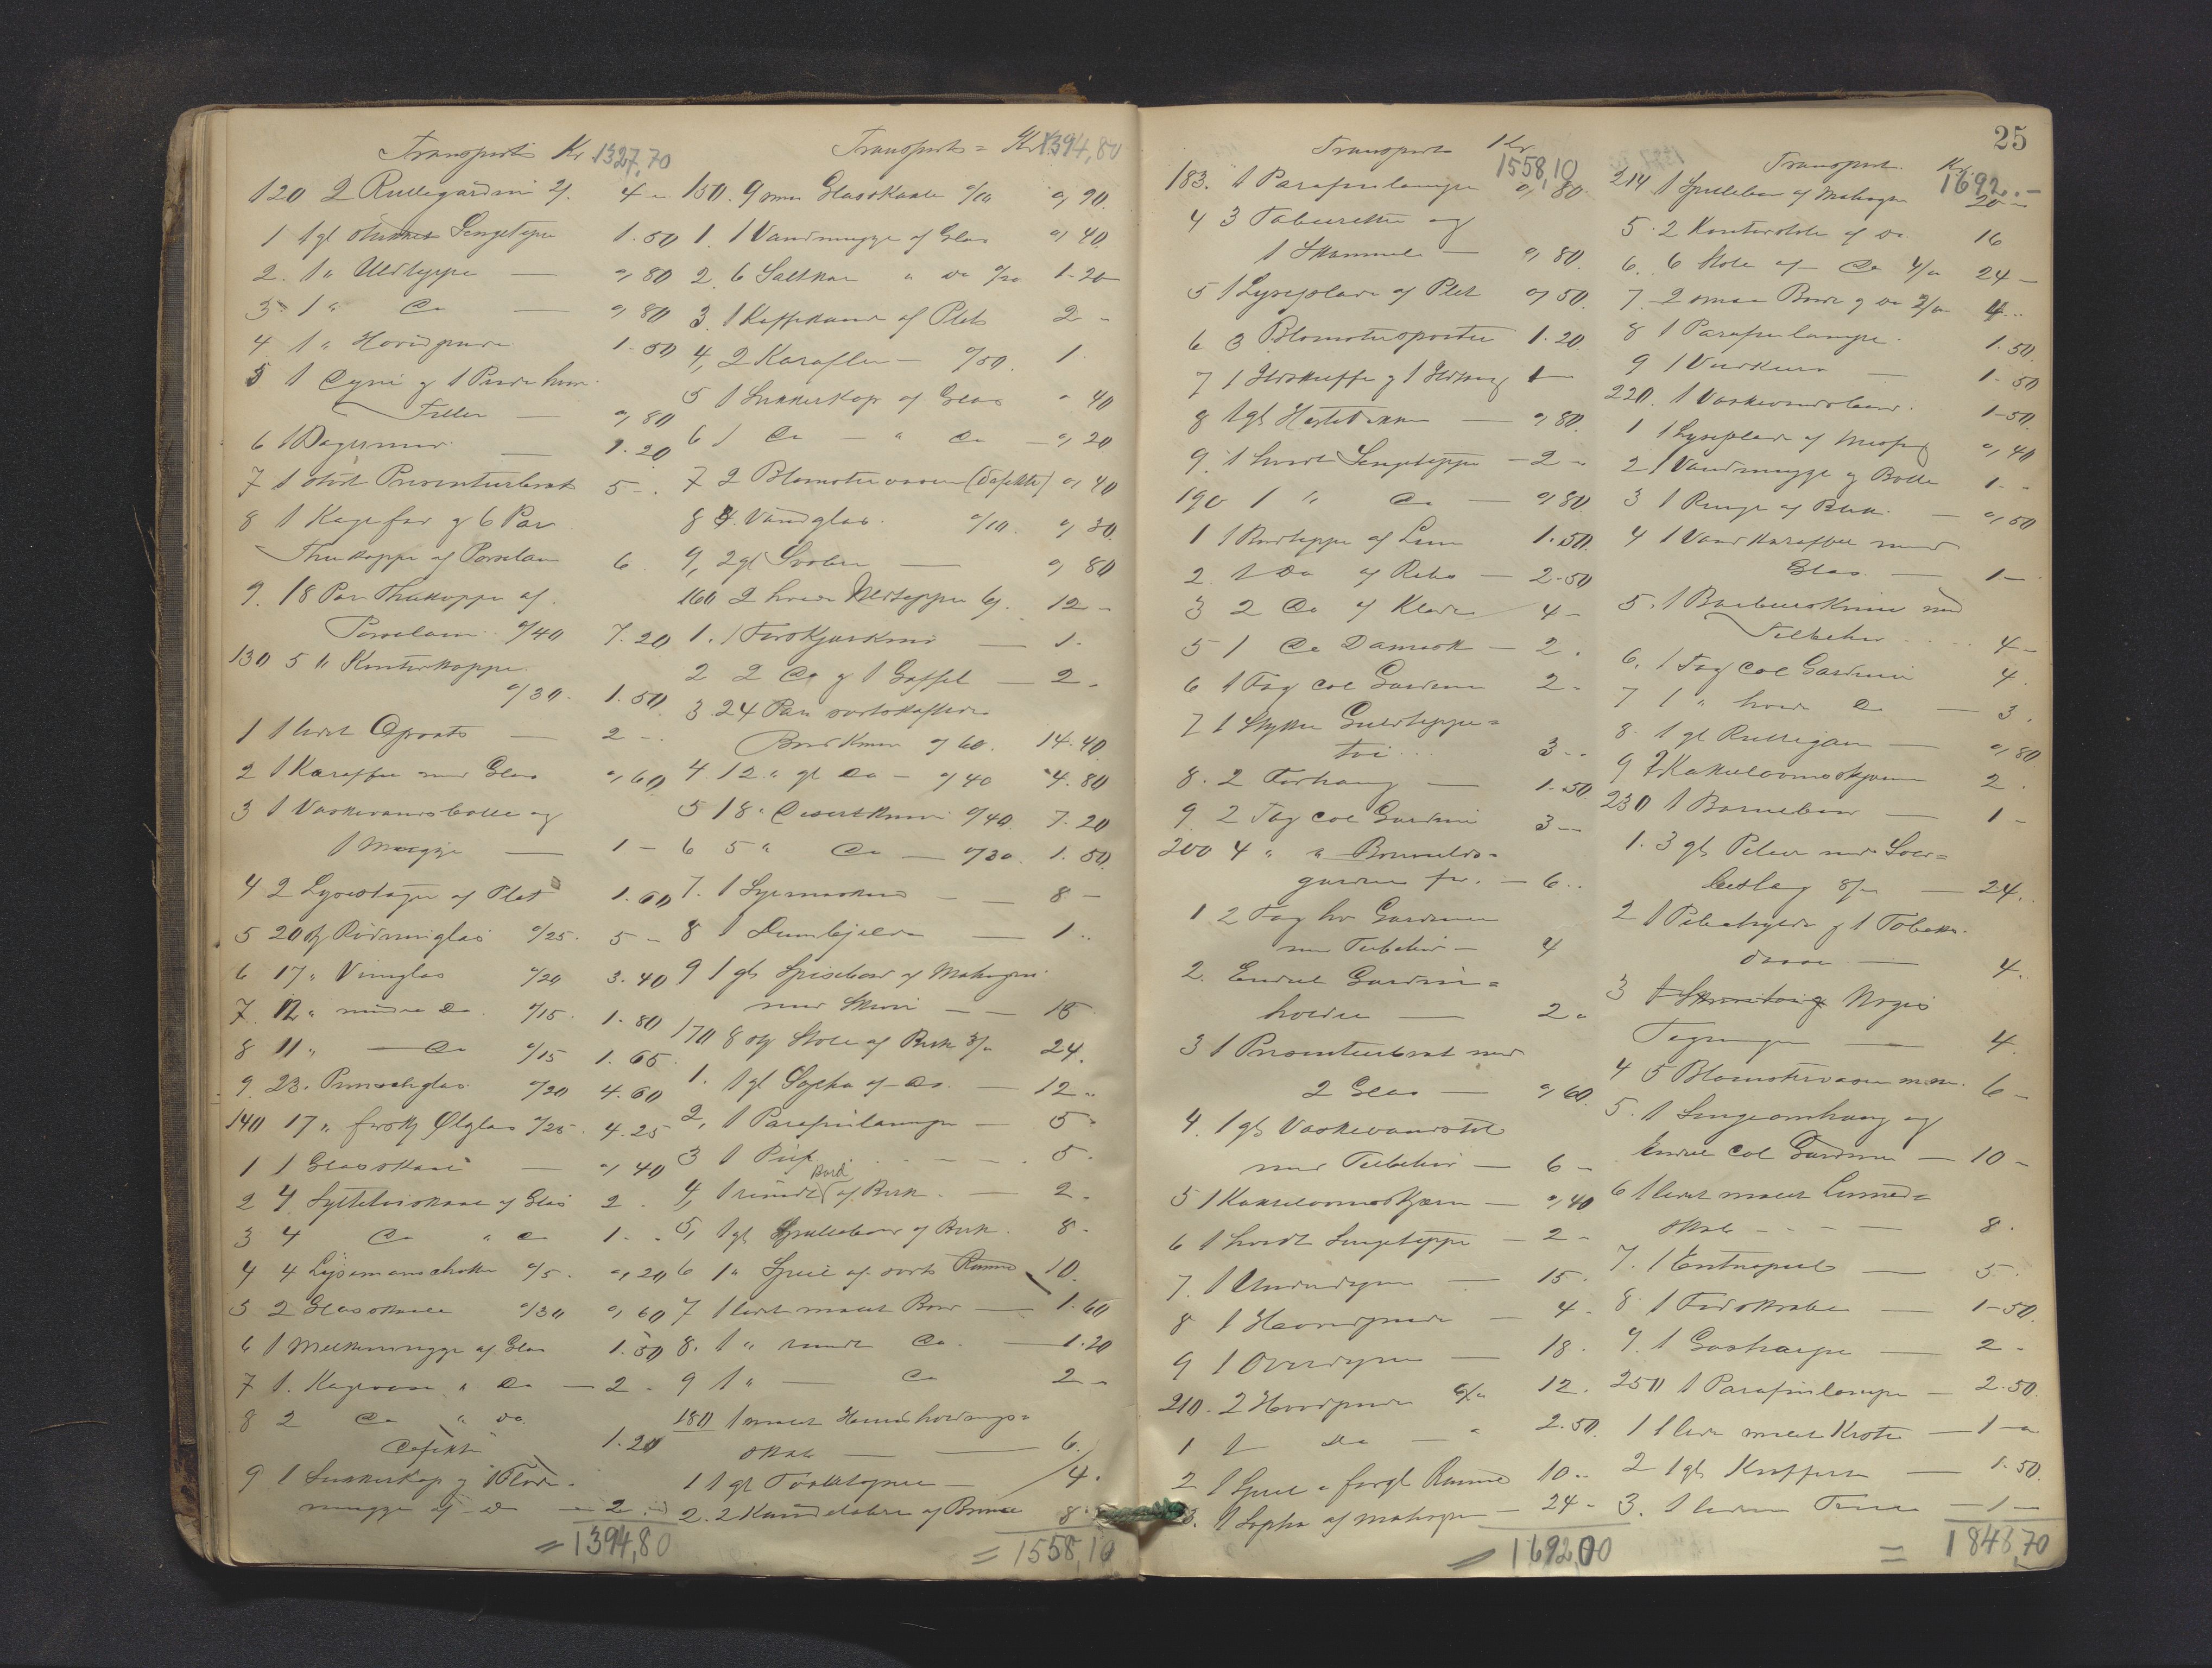 Transport Kr. 1327,70
120 2 Rullegardiner 2/. 4 -
1 1 gl strikket Sengeteppe 1.50
2. 1 " Uldteppe — 0,80
3 1 " Do — 0,80
4 1 " Hovedpude 1.50
5 1 Dyne og 1 Pude
— 0,80
6 1 — 1.20
7 1 stort Presenterbret 5 -
8 1 Kagefad og 6 Par
Thekopper af Porselæn 6
9. 18 Par Thekopper af
Porselæn a/40 7.20
130 5 "
a/30. 1.50
1 1 lidet — 2 -
2 1 Karaffel med Glas 0,60
3 1 Vaskevandsbolle og
1 Mugge — 1 -
4 2 Lysestager af Plet 1.60
5 20 st Rødvinglas a/25. 5 -
6 17 " Vinglas a/20 3.40
7. 12 " mindre Do a/15. 1.80
8 11 " — Do a/15 1.65
9. 23. Punscheglas a/20 4.60
140 17 " forskj Ølglas a/25. 4.25
1 1 Glasskaal — 0,40
2 4 Syltetøiskaale af Glas 2.
3 4 Do " Do 1. -
4 4 Lysemanschetter a/5. 0,20
5 2 Glasskaale a/30 0,60
6 1 Melkemugge af Glas 1.50
7 1. Kagevase " Do — 2 -
8 2 Do " Do
defekte 1.20
9 1 Sukkerkop og 1 Fløde-
mugge af Do — 2. -
= 1394,80
Transport = Kr. 1394,80
150. 9 smaa Glasskaale a/10 0,90.
1. 1 Vandmugge af Glas 0,40
2. 6 Saltkar " Do a/20 1.20
3. 1 Kaffekande af Plet 2 -
4, 2 Karafler — a/50. 1.
5 1 Sukkerkop af Glas " 40
6 1 Do — " Do — 0,20
7 2 Blomstervaser (defekte) 0,40
8 3. Vandglas. a/10. 0,30.
9, 2 gl — 0,80
160 2 hvide Uldtepper 6/. 12 -
1. 1 Forskjærkniv — 1.
2 2 Do og 1 Gaffel — 2 -
3. 24 Par sortskaftede
Bordknive a/60. 14.40
4. 12 " gl Do — a/40 4.80
5 18 " Desertknive a/40. 7.20
6 5 " Do — a/30. 1.50
7. 1 Symaskine — — 8 -
8 1 — 1. -
9 1 gl Spisebord af Mahogni
med — — 15
170 8 st Stole af Birk 3/- 24.
1. 1 gl Sopha af Do. — 12 -
2, 1 Parafinlampe — 5 -
3 1 — 5.
4, 1 rundt Bord af Birk. — 2 -
5, 1 gl Spillebord af Birk. 8 -
6 1 " Speil af sort Ramme 10.
7 1 lidet malet Bord — 1.60
8. 1 " rundt Do. — 1.20
9 1 " — Do 2 -
180 1 malet Husholdnings-
skab — 6.
1 1 gl — 4.
2. 2 Kandelabre af Bronce 8 -
= 1558,10
25
Transport Kr. 1558,10
183. 1 Parafinlampe 0,80.
4 3 Taburetter og
1 Skammel — 0,80.
5 1 Lyseplade af Plet 0,50.
6 3 Blomsterpotter 1.20
7 1 Ildskuffe og 1 Ildtang 1 —
8 1 gl — 0,80.
9. 1 hvidt Sengeteppe — 2 -
190 1 " Do — 0,80
1 1 Bordteppe af 1.50.
2. 1 Do af — 2.50
3 2 Do af Klæde 4 -
5 1 Do Damask — 2.
6 1 Fag col Gardiner 2 -
7 1 Stykke Gulvteppe-
tøi 3 -
8. 2 Forhæng — 1.50
9. 2 Fag col Gardiner 3 —
200 4 " " Bomulds-
gardiner — 6 ..
1 2 Fag hv Gardiner
med Tilbehør — 4
2. Endel Gardin-
holdere — 2 "
3 1 Presenterbret med
2 Glas — 0,60.
4. 1 gl Vaskevandstel
med Tilbehør — 6 -
5 1 Kakkelovnsskjærm — 0,40
6 1 hvidt Sengeteppe — 2 -
7. 1 Underdyne — 15.
8 1 Hovedpude — 4 -
9 1 Overdyne — 18.
210. 2 Hovedpuder 6/- 12.
1 1 Do — " 2.50.
2 1 Speil i forgl Ramme 10 -
3. 1 Sopha af Mahogni — 24 -
= 1692,00
Transport. Kr. 1692.-
214 1 Spillebord af Mahogni 20 -
5. 2 Kontorstole af Do. 16
6. 6 Stole af Do 4/- 24 -
7. 2 smaa Borde af Do 2/- 4 ..
8 1 Parafinlampe. 1.50.
9 1 — 1.50
220. 1 Vaskevandsbord. 1.50.
1 1 Lyseplade af Messing 0,40
2 1 Vandmugge og Bolle 1. -
3 1 af Blik. — 0,50
4 1 Vandkaraffel med
Glas. — 1 -
5. 1 Barberkniv med
Tilbehør 4 -
6. 1 Fag col Gardiner 4.
7 1 " hvide Do — 3.
8. 1 gl Rullegardin — 0,80
9 2 Kakkelovnsskjærme 2.
230 1 Barnebord — 1 -
1. 3 gl Piber med Sølv-
beslag 8/- — 24.
2 1 Pibehylde og 1 Tobaks-
daase — 4.
3 Nogle
Tegninger — 4.
4 5 Blomstervaser m.m. 6 -
5. 1 Sengeomhæng og
Endel col Gardiner — 10 -
6 1 lidet malet Linned-
skab — 8.
7. 1 — 5.
8. 1 Fodskraber — 1.50.
9. 1 — 2 -
250 1 Parafinlampe — 2.50.
1 1 liden malet Kiste — 1 —
2 1 gl Kuffert — 1.50.
3. 1 liden — 1 —
= 1843,70